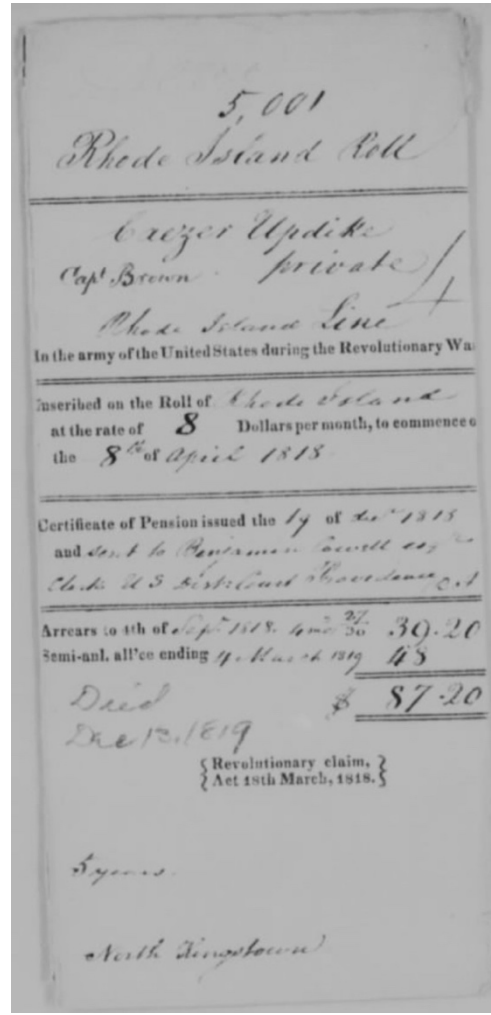 5,001
Rhode Island Roll
Caezer Updike
Capt Brown private
Rhode Island Line
In the army of the United States during the Revolutionary Wa
Inscribed on the Roll of Rhode Island
at the rate of 8 Dollars per month, to commence o
the 8th of April 1818
Certificate of Pension issued the 19 of 1818
and sent to Benjamin Cowell esqr
Clerk U S Dist Court Providence
Arrears to 4th of Sept 1818. 4 mo 27/30 39.20
Semi-anl. all'ce ending 4 March 1819 48
$ 87.20
Died
Dec 13, 1819
{Revolutionary claim,}
{Act 18th March, 1818.}
5 years.
North Kingstown